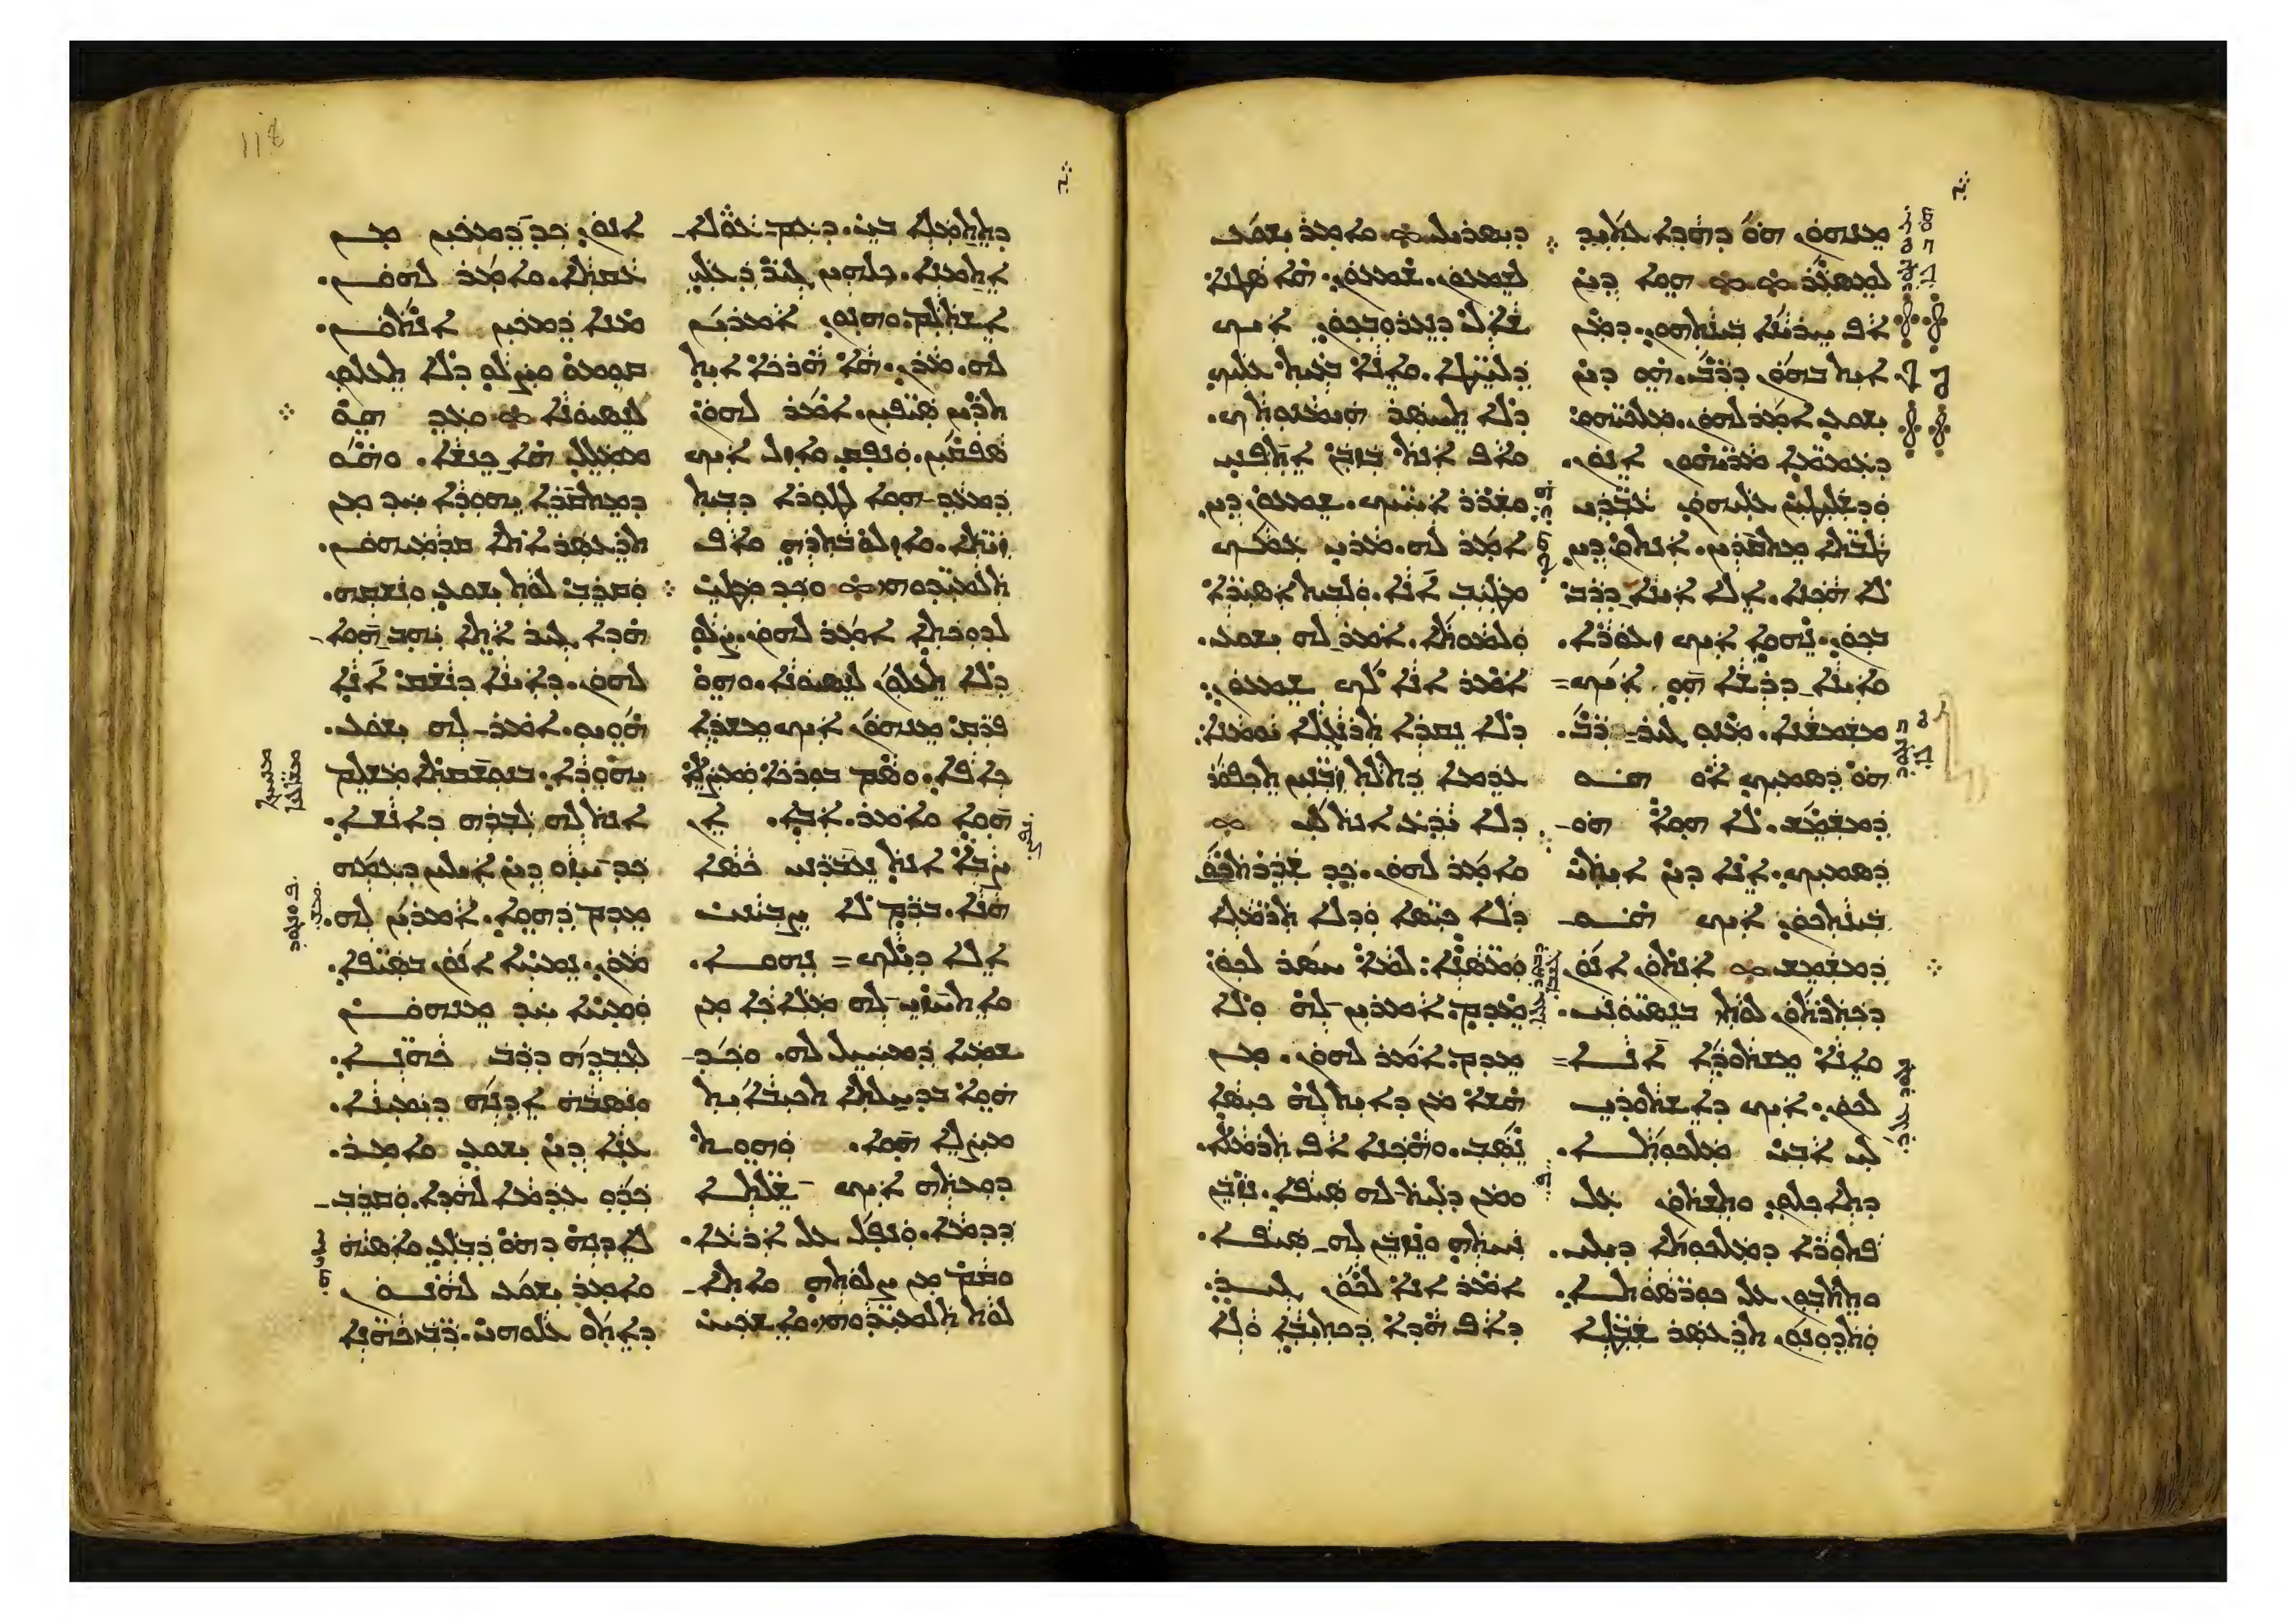 ܡܢܗܘܢ ܗܘ ܕܗܕܐ ܥܬܝܕ
ܠܡܣܥܪ ܗܘܐ ܕܝܢ
ܐܦ ܚܪܝܢܐ ܒܝܢܬܗܘܢ. ܕܡܢ
ܐܝܬ ܒܗܘܢ ܕܪܒ. ܗܘ ܕܝܢ
ܝܫܘܥ ܐܡܪ ܠܗܘܢ. ܡܠܟܝܗܘܢ
ܕܥܡܡܐ ܡܪܝܗܘܢ ܐܢܘܢ.
ܘܕܫܠܝܛܝܢ ܥܠܝܗܘܢ ܥܒܕܝ
ܛܒܬܐ ܡܬܩܪܝܢ. ܐܢܬܘܢ ܕܝܢ
ܠܐ ܗܟܢܐ. ܐܠܐ ܐܝܢܐ ܕܪܒ
ܒܟܘܢ. ܢܗܘܐ ܐܝܟ ܙܥܘܪܐ.
ܘܐܝܢܐ ܕܪܫܐ ܗܘ ܐܝܟ
ܡܫܡܫܢܐ. ܡܢܘ ܓܝܪ ܪܒ.
ܗܘ ܕܣܡܝܟ ܐܘ ܗܘ
ܕܡܫܡܫ. ܠܐ ܗܘܐ ܗܘ
ܕܣܡܝܟ. ܐܢܐ ܕܝܢ ܐܝܬܝ
ܒܝܢܬܟܘܢ ܐܝܟ ܗܘ
ܕܡܫܡܫ ܐܢܬܘܢ ܐܢܘܢ
ܕܟܬܪܬܘܢ ܠܘܬܝ ܒܢܣܝܘܢܝ.
ܘܐܢܐ ܡܫܬܘܕܐ ܐܢܐ
ܠܟܘܢ. ܐܝܟ ܕܐܫܬܘܕܝ
ܠܝ ܐܒܝ ܡܠܟܘܬܐ.
ܕܬܐܟܠܘܢ ܘܬܫܬܘܢ ܥܠ
ܦܬܘܪܐ ܕܡܠܟܘܬܐ ܕܝܠܝ.
ܘܬܬܒܘܢ ܥܠ ܟܘܪܣܘܬܐ.
ܘܬܕܘܢܘܢ ܬܪܥܣܪ ܫܒܛܐ
ܕܝܣܪܝܠ ܘܐܡܪ ܝܫܘܥ
ܠܫܡܥܘܢ. ܫܡܥܘܢ. ܗܐ ܣܛܢܐ
ܫܐܠ ܕܢܥܪܘܒܟܘܢ ܐܝܟ
ܕܠܚܛܐ. ܘܐܢܐ ܒܥܝܬ ܥܠܝܟ
ܕܠܐ ܬܚܣܪ ܗܝܡܢܘܬܟ.
ܘܐܦ ܐܢܬ ܒܙܒܢ ܐܬܦܢܝ
ܘܫܪܪ ܐܚܝܟ. ܫܡܥܘܢ ܕܝܢ
ܐܡܪ ܠܗ. ܡܪܝ ܥܡܟ
ܡܛܝܒ ܐܢܐ. ܘܠܒܝܬ ܐܣܝܪܐ
ܘܠܡܘܬܐ. ܐܡܪ ܠܗ ܝܫܘܥ.
ܐܡܪ ܐܢܐ ܠܟ ܫܡܥܘܢ
ܕܠܐ ܢܩܪܐ ܬܪܢܓܠܐ ܝܘܡܢܐ
ܥܕܡܐ ܕܬܠܬ ܙܒܢܝܢ ܬܟܦܘܪ
ܕܠܐ ܝܕܥ ܐܢܬ ܠܝ
ܘܐܡܪ ܠܗܘܢ. ܟܕ ܫܕܪܬܟܘܢ
ܕܠܐ ܟܝܣܐ ܘܕܠܐ ܬܪܡܠܐ
ܘܡܣܢܐ ܠܡܐ ܚܣܪ ܠܟܘܢ
ܡܕܡ. ܐܡܪܝܢ ܠܗ ܘܠܐ
ܡܕܡ. ܐܡܪ ܠܗܘܢ. ܡܢ
ܗܫܐ ܡܢ ܕܐܝܬ ܠܗ ܟܝܣܐ
ܢܣܒ. ܘܗܟܢܐ ܐܦ ܬܪܡܠܐ.
ܘܡܢ ܕܠܝܬ ܠܗ ܣܝܦܐ. ܢܙܒܢ
ܢܚܬܗ ܘܢܙܒܢ ܠܗ ܣܝܦܐ.
ܐܡܪ ܐܢܐ ܠܟܘܢ ܓܝܪ.
ܕܐܦ ܗܕܐ ܕܟܬܝܒܐ ܘܠܐ
ܕܬܬܡܠܐ ܒܝ. ܕܥܡ ܥܘܠܐ
ܐܬܡܢܐ. ܟܠܗܝܢ ܓܝܪ ܕܥܠܝ
ܐܫܬܠܡ. ܘܗܢܘܢ ܐܡܪܝܢ
ܠܗ. ܡܪܢ. ܗܐ ܗܪܟܐ ܐܝܬ
ܬܪܝܢ ܣܝܦܝܢ. ܐܡܪ ܠܗܘܢ
ܣܦܩܝܢ. ܘܢܦܩ ܘܐܙܠ ܐܝܟ
ܕܡܥܕ ܗܘܐ ܠܛܘܪܐ ܕܒܝܬ
ܙܝܬܐ. ܘܐܙܠܘ ܒܬܪܗ ܘܐܦ
ܬܠܡܝܕܘܗܝ ܘܟܕ ܡܛܝ
ܠܕܘܟܬܐ ܐܡܪ ܠܗܘܢ. ܨܠܘ
ܕܠܐ ܬܥܠܘܢ ܠܢܣܝܘܢܐ. ܘܗܘ
ܦܪܩ ܡܢܗܘܢ ܐܝܟ ܡܫܕܐ
ܟܐܦܐ. ܘܣܡ ܒܘܪܟܐ ܘܡܨܠܐ
ܗܘܐ ܘܐܡܪ. ܐܒܐ. ܐܢ
ܨܒܐ ܐܢܬ ܢܥܒܪܢܝ ܟܣܐ
ܗܢܐ. ܒܪܡ ܠܐ ܨܒܝܢܝ
ܐܠܐ ܕܝܠܟ ܢܗܘܐ.
ܘܐܬܚܙܝ ܠܗ ܡܠܐܟܐ ܡܢ
ܫܡܝܐ ܕܡܚܝܠ ܠܗ. ܘܟܕ
ܗܘܐ ܒܕܚܠܬܐ ܬܟܝܒܐܝܬ
ܡܨܠܐ ܗܘܐ. ܘܗܘܬ
ܕܘܥܬܗ ܐܝܟ ܫܠܬܐ
ܕܕܡܐ. ܘܢܦܠ ܥܠ ܐܪܥܐ.
ܘܩܡ ܡܢ ܨܠܘܬܗ ܘܐܬܐ
ܠܘܬ ܬܠܡܝܕܘܗܝ. ܘܐܫܟܚ
ܐܢܘܢ ܟܕ ܕܡܟܝܢ ܡܢ
ܥܩܬܐ. ܘܐܡܪ ܠܗܘܢ.
ܡܢܐ ܕܡܟܝܢ ܐܢܬܘܢ.
ܩܘܡܘ ܘܨܠܘ ܕܠܐ ܬܥܠܘܢ
ܠܢܣܝܘܢܐ ܘܥܕ ܗܘ
ܡܡܠܠ ܗܐ ܟܢܫܐ. ܘܗܘ
ܕܡܬܩܪܐ ܝܗܘܕܐ ܚܕ ܡܢ
ܬܪܥܣܪ ܐܬܐ ܩܕܡܝܗܘܢ.
ܘܩܪܒ ܠܘܬ ܝܫܘܥ ܘܢܫܩܗ.
ܗܕܐ ܓܝܪ ܐܬܐ ܝܗܒ ܗܘܐ
ܠܗܘܢ. ܕܐܝܢܐ ܕܢܫܩ ܐܢܐ
ܗܘܝܘ. ܐܡܪ ܠܗ ܝܫܘܥ.
ܝܗܘܕܐ. ܒܢܘܫܩܬܐ ܡܫܠܡ
ܐܢܬ ܠܗ ܠܒܪܗ ܕܐܢܫܐ.
ܟܕ ܚܙܘ ܕܝܢ ܐܝܠܝܢ ܕܥܡܗ
ܡܕܡ ܕܗܘܐ. ܐܡܪܝܢ ܠܗ.
ܡܪܢ. ܢܡܚܐ ܐܢܘܢ ܒܣܝܦܐ.
ܘܡܚܐ ܚܕ ܡܢܗܘܢ
ܠܥܒܕܗ ܕܪܒ ܟܗܢܐ.
ܘܢܣܒܗ ܐܕܢܗ ܕܝܡܝܢܐ.
ܥܢܐ ܕܝܢ ܝܫܘܥ ܘܐܡܪ.
ܟܕܘ ܥܕܡܐ ܠܗܕܐ. ܘܩܪܒ
ܠܐܕܢܗ ܕܗܘ ܕܒܠܥ ܘܐܣܝܗ
ܘܐܡܪ ܝܫܘܥ ܠܗܢܘܢ
ܕܐܬܘ ܥܠܘܗܝ. ܪܒܝ ܟܗܢܐ
118